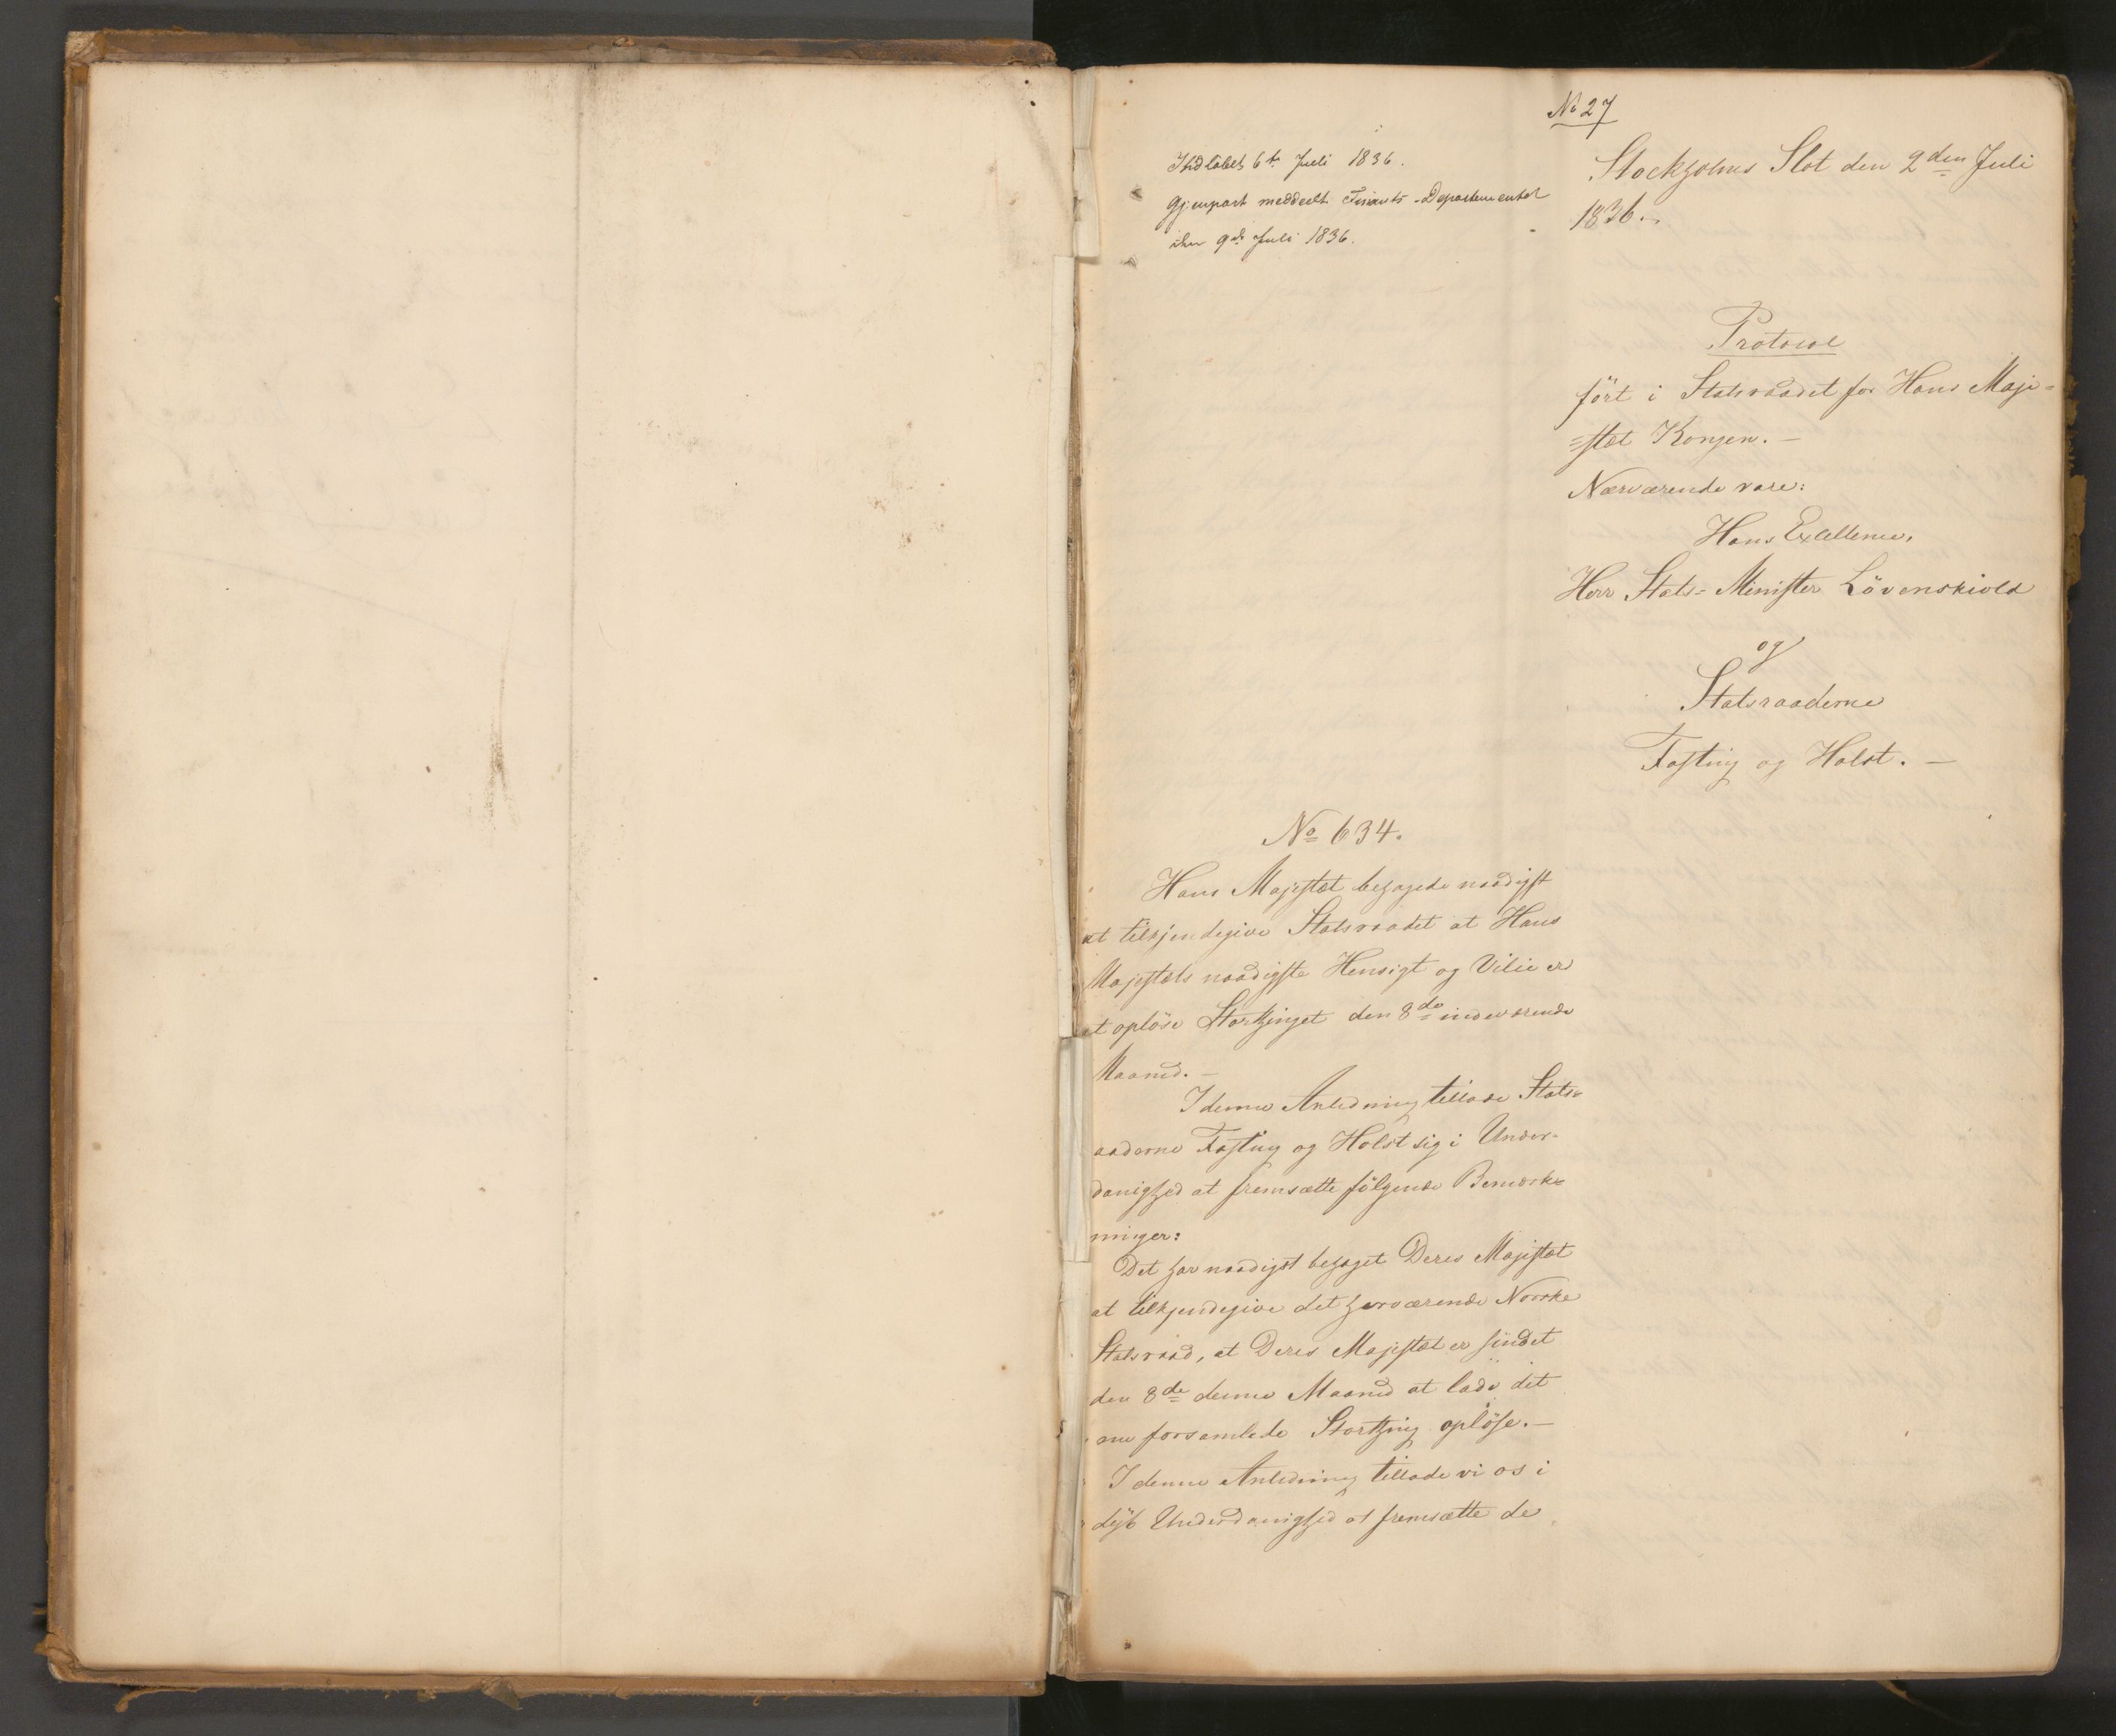 No 27
Indløbet 6te Juli 1836.
Gjenpart meddeelt Finants-Departementet
den 9de Juli 1836.
Stockholms Slot den 2den Juli
1836.
Protocol
fört i Statsraadet for Hans Maje=
=stæt Kongen. —
Nærværende vare:
Hans Excellence,
Herr Stats=Minister Lövenskiold
og
Statsraaderne
Fasting og Holst. —
No 634.
Hans Majestæt behagede naadigst
at tilkjendegive Statsraadet at Hans
Majestæts naadigste Hensigt og Villie er
at oplöse Storthinget den 8de indeværende
Maaned. —
I denne Anledning tillode Stats=
aaderne Fasting og Holst sig i Under-
danighed at fremsætte fölgende Bemærk=
ninger:
Det har naadigst behaget Deres Majestæt
at tilkjendegive det herværende Norske
Statsraad, at Deres Majestæt er sindet
den 8de denne Maaned at lade det
nu forsamlede Storthing oplöse. —
I denne Anledning tillade vi os i
dyb Underdanighed at fremsætte de